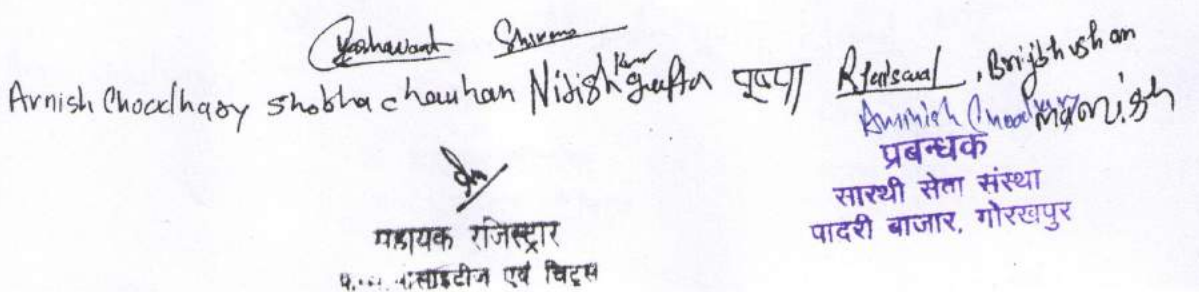 Yashawant Shivam
Avnish Choudhary Shobha chauhan Nitish Kumar Gupta पुष्पा R Jaiswal, Brijbhushan
Avnish Choudhary Manish
प्रबन्धक
सारथी सेवा संस्था
पादरी बाजार, गोरखपुर
सहायक रजिस्ट्रार
सोसाइटीज एवं चिट्स